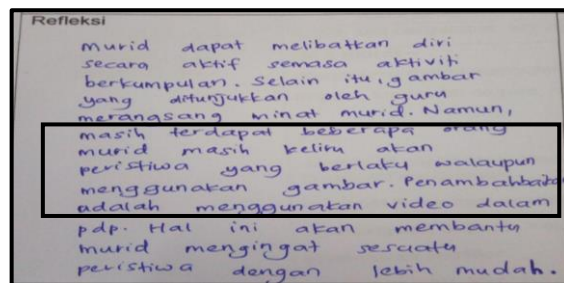 Refleksi
murid dapat melibatkan diri
secara aktif semasa aktiviti
berkumpulan. Selain itu, gambar
yang ditunjukkan oleh guru
merangsang minat murid. Namun,
masih terdapat beberapa orang
murid masih keliru akan
peristiwa yang berlaku walaupun
menggunakan gambar. Penambahbaikan
adalah menggunakan video dalam
pdp. Hal ini akan membantu
murid mengingat sesuatu
peristiwa dengan lebih mudah.